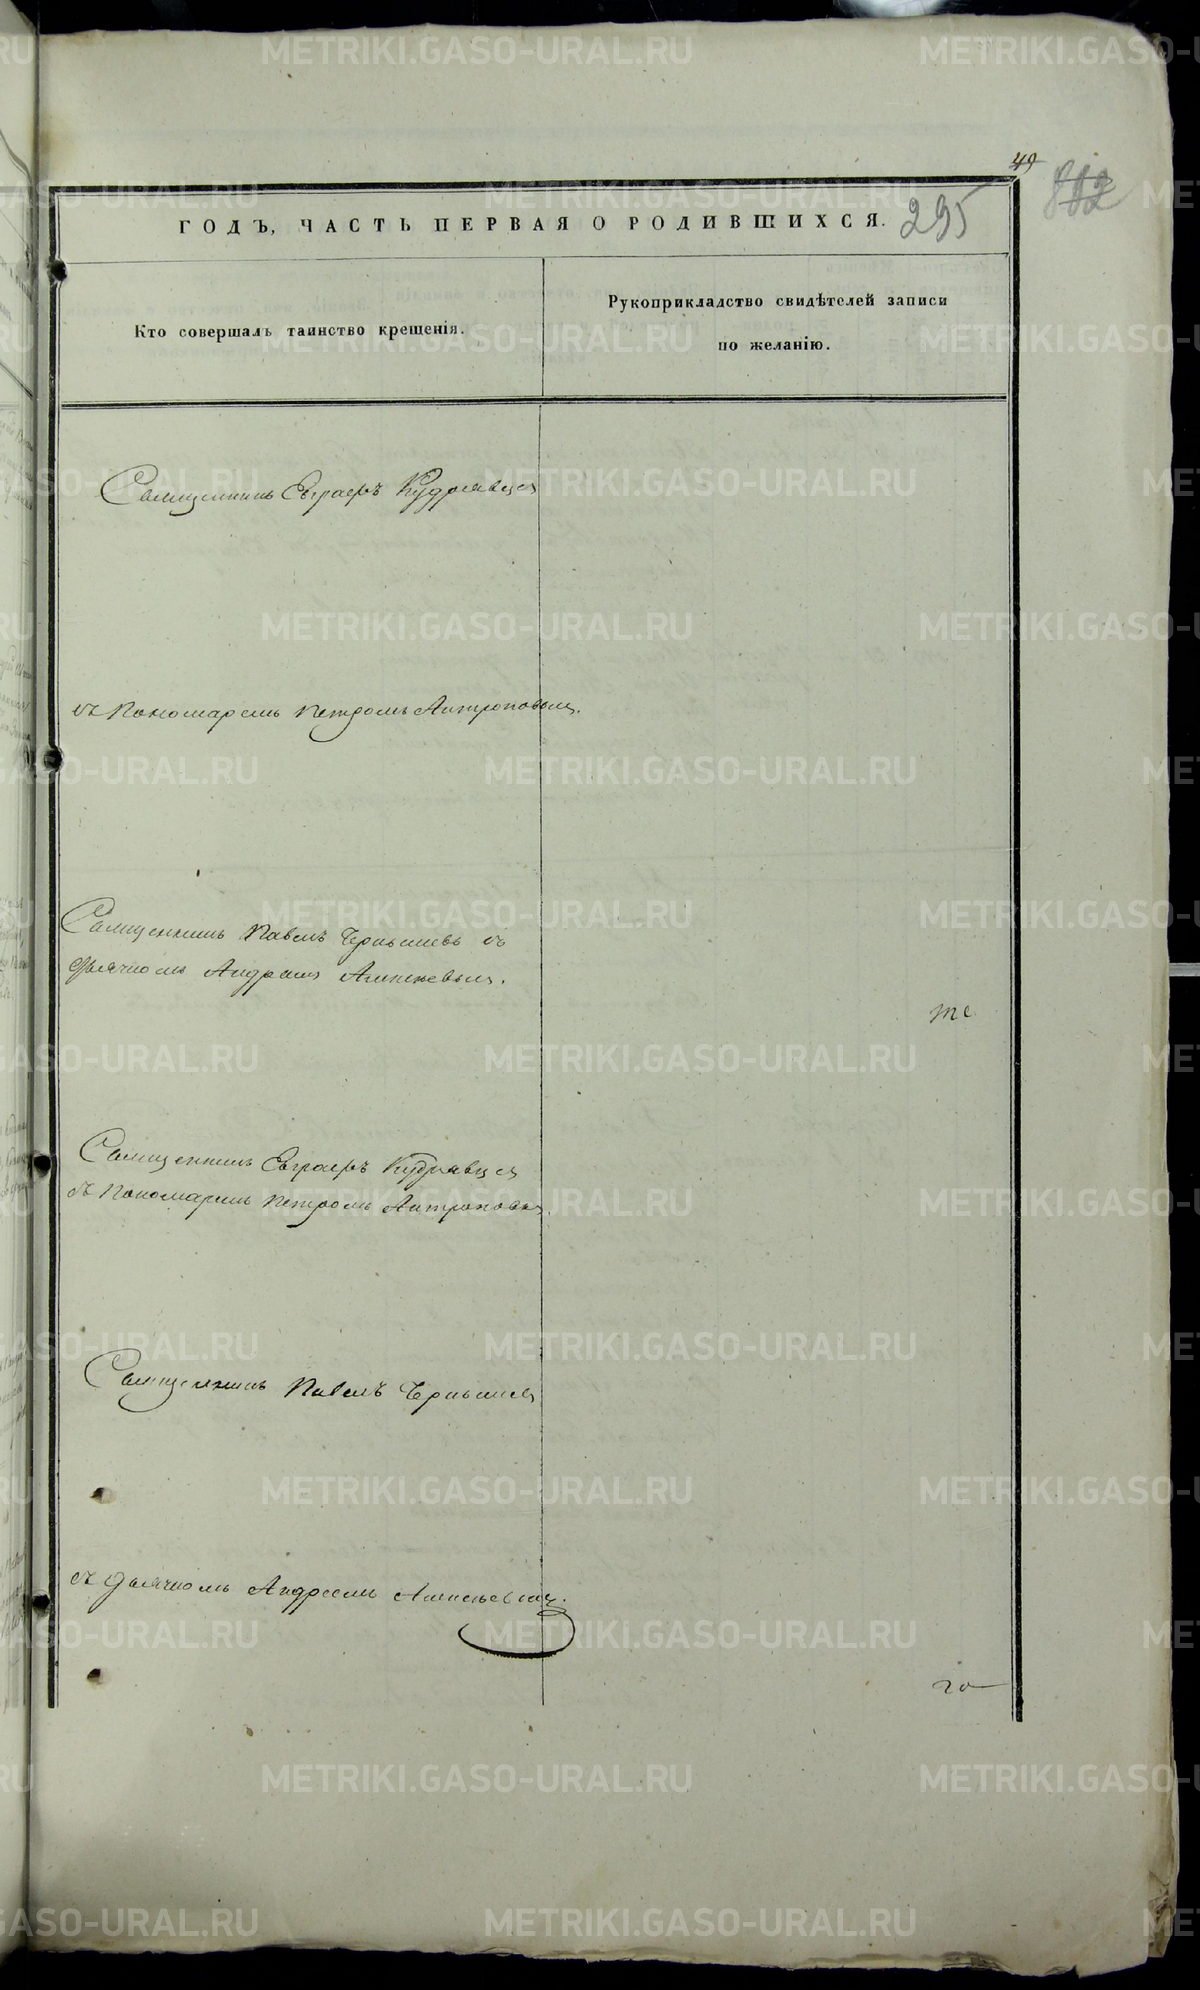 49
882
ГОДЪ, ЧАСТЬ ПЕРВАЯ О РОДИВШИХСЯ. 295
Кто совершалъ таинство крещенія.
Рукоприкладство свидѣтелей записи
по желанію.
Священникъ Евграфъ Кудрявцев
съ Пономаремъ Петромъ Антроповым.
Священникъ Павелъ Чернышевъ съ
дьячкомъ Андреем
те
Священникъ Евграфъ Кудрявцев
съ Пономаремъ Петромъ Антроповым.
Священникъ Павелъ Чернышев
съ дьячкомъ Андреемъ
го
METRIKI.GASO-URAL.RU